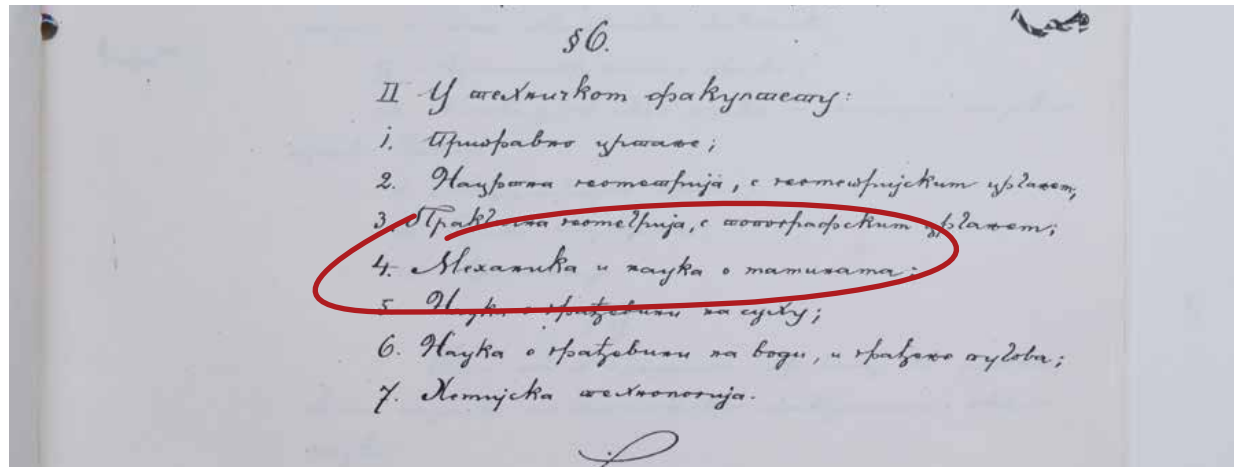 §6.
II У техничком факултету:
1. Приправно цртање;
2. Нацртна геометрија, с геометријским цртанем;
3. Практична геометрија, с топографским цртанем;
4. Механика и наука о машинама;
5. Наука о грађевини на суху;
6. Наука о грађевини на води, и грађењу путова;
7. Хемијска технологија.